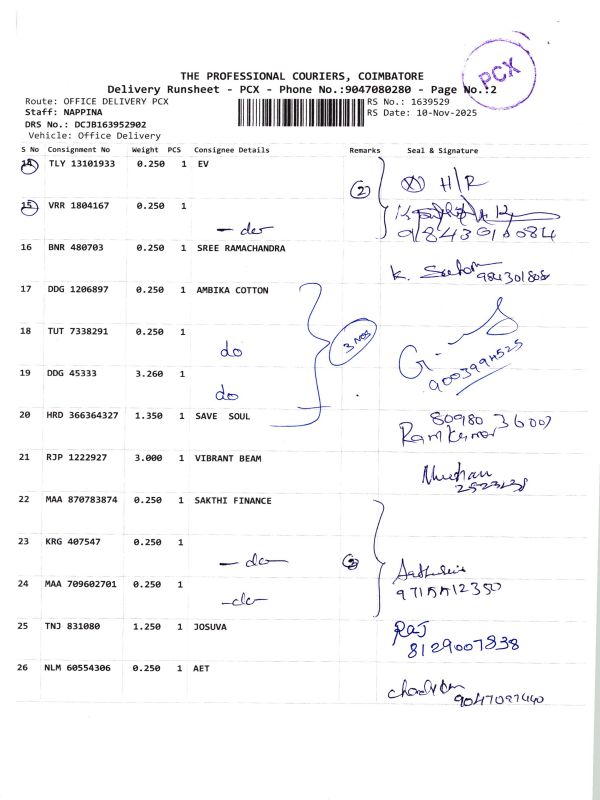 PCX
THE PROFESSIONAL COURIERS, COIMBATORE
Delivery Runsheet - PCX - Phone No.:9047080280 - Page No.:2
Route: OFFICE DELIVERY PCX
Staff: NAPPINA
DRS No.: DCJB163952902
Vehicle: Office Delivery
RS No.: 1639529
RS Date: 10-Nov-2025
S No Consignment No Weight PCS Consignee Details Remarks Seal & Signature
14 TLY 13101933 0.250 1 EV (2) H/R
15 VRR 1804167 0.250 1 - do
9843010084
16 BNR 480703 0.250 1 SREE RAMACHANDRA K.
17 DDG 1206897 0.250 1 AMBIKA COTTON
18 TUT 7338291 0.250 1 do 3 NOS G.
19 DDG 45333 3.260 1 do
20 HRD 366364327 1.350 1 SAVE SOUL 80980 36007
Ramkumar
21 RJP 1222927 3.000 1 VIBRANT BEAM
22 MAA 870783874 0.250 1 SAKTHI FINANCE
23 KRG 407547 0.250 1 - do (3)
24 MAA 709602701 0.250 1 - do
25 TNJ 831080 1.250 1 JOSUVA Raj
8129007838
26 NLM 60554306 0.250 1 AET